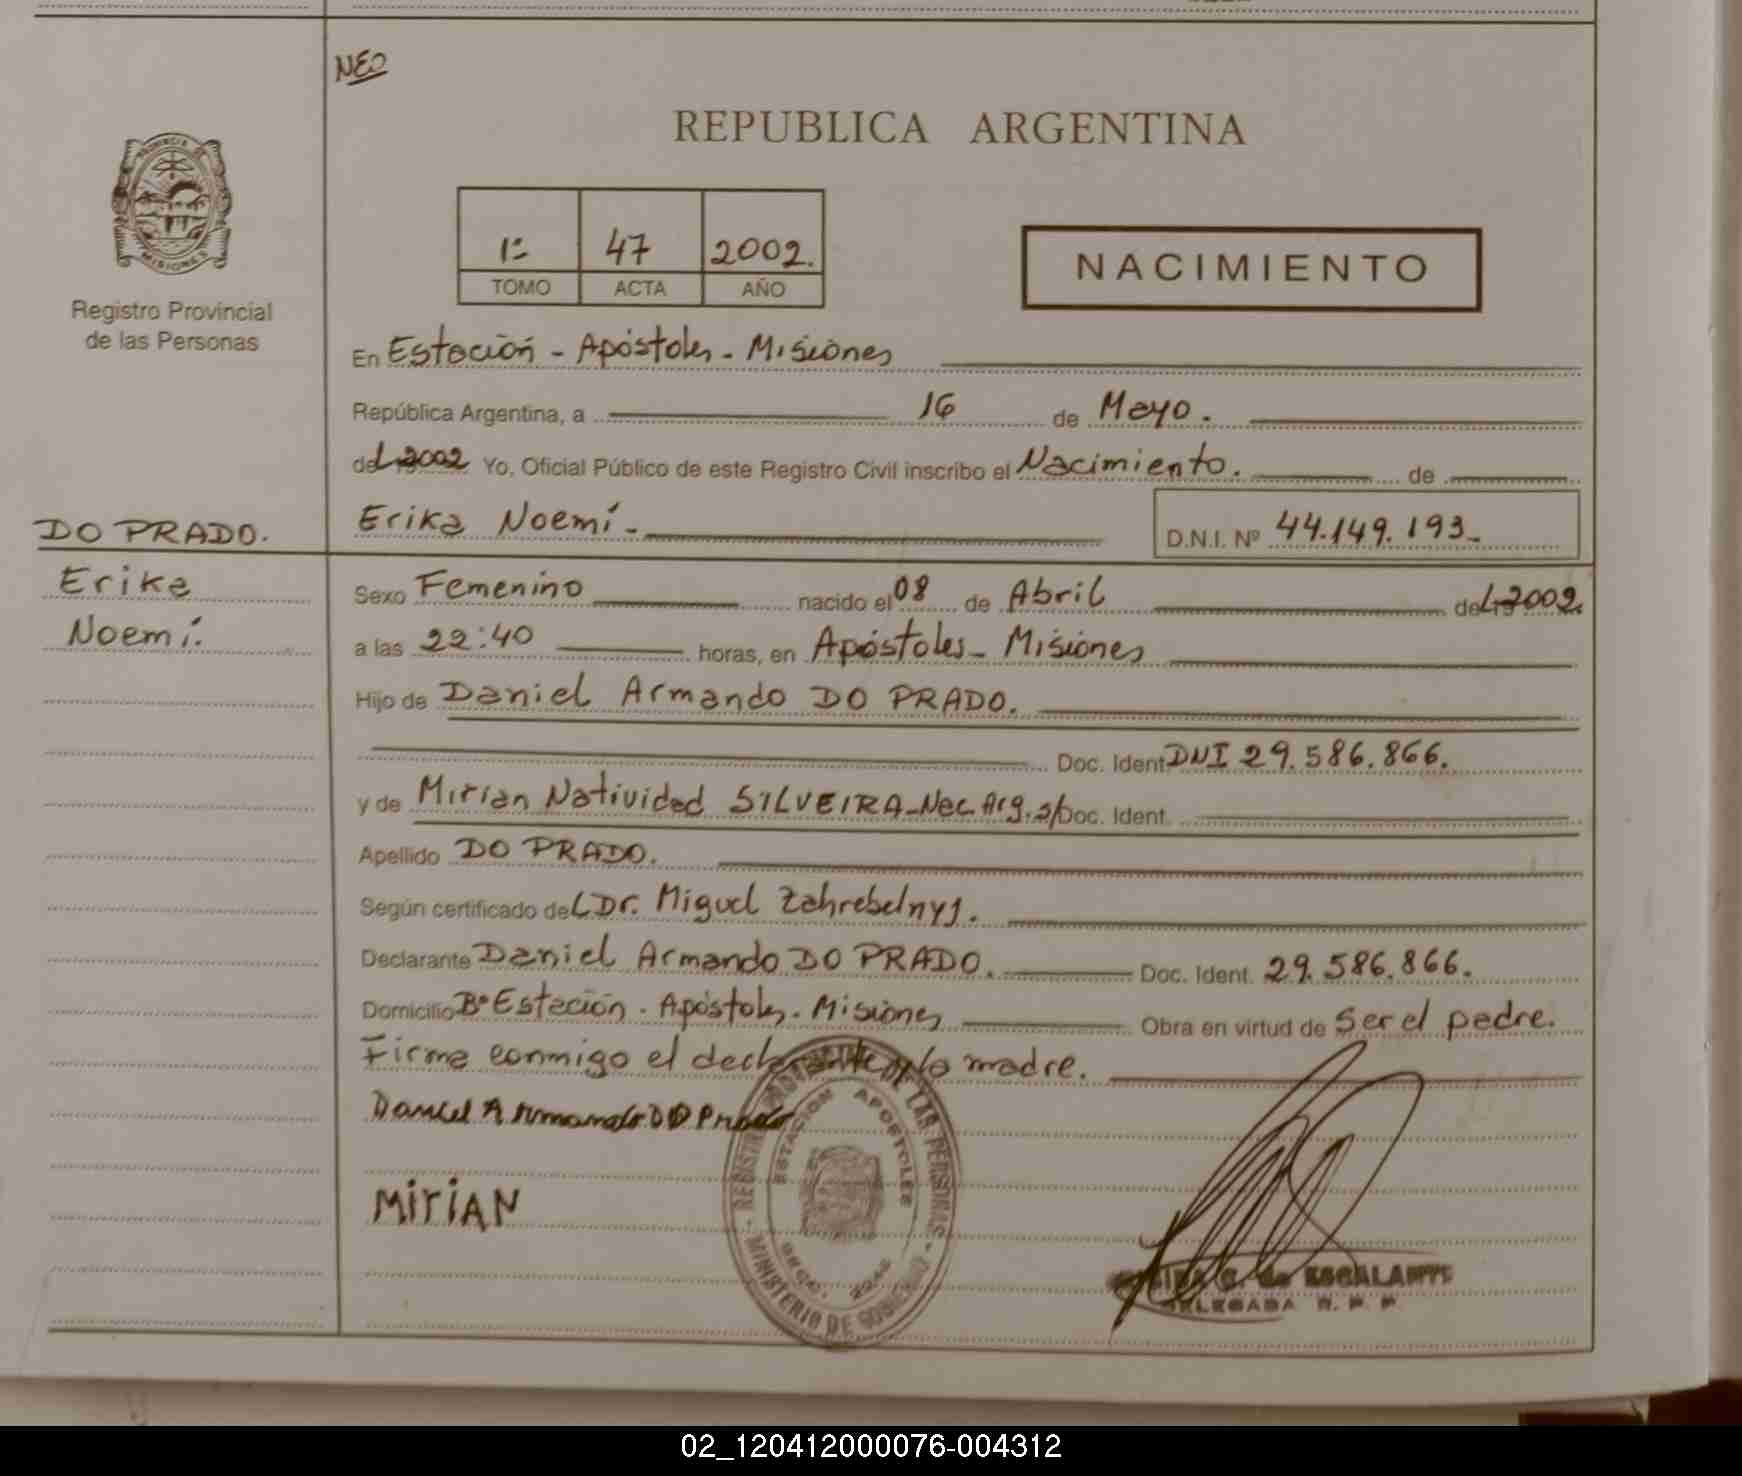 NEO
REPUBLICA ARGENTINA
PROVINCIA DE
MISIONES
Registro Provincial
de las Personas
1º 47 2002.
TOMO ACTA AÑO
NACIMIENTO
En Estación - Apóstoles - Misiones
República Argentina, a 16 de Mayo.
del 2002 Yo, Oficial Público de este Registro Civil inscribo el Nacimiento. de
DO PRADO.
Erika Noemí. D.N.I. Nº 44.149.193.
Erika
Noemí.
Sexo Femenino nacido el 08 de Abril del 2002.
a las 22:40 horas, en Apóstoles - Misiones
Hijo de Daniel Armando DO PRADO.
Doc. Ident. DNI 29.586.866.
y de Mirian Natividad SILVEIRA - Nac. Arg. s/Doc. Ident.
Apellido DO PRADO.
Según certificado del Dr. Miguel Zahrebelnyj.
Declarante Daniel Armando DO PRADO. Doc. Ident. 29.586.866.
Domicilio Bº Estación - Apóstoles - Misiones Obra en virtud de Ser el padre.
Firma conmigo el declarante y la madre.
Daniel Armando DO Prado
MiriAN
REGISTRO PROVINCIAL DE LAS PERSONAS
ESTACION APOSTOLES
MINISTERIO DE GOBIERNO
C. de ESCALANTE
DELEGADA R. P. P.
02_120412000076-004312